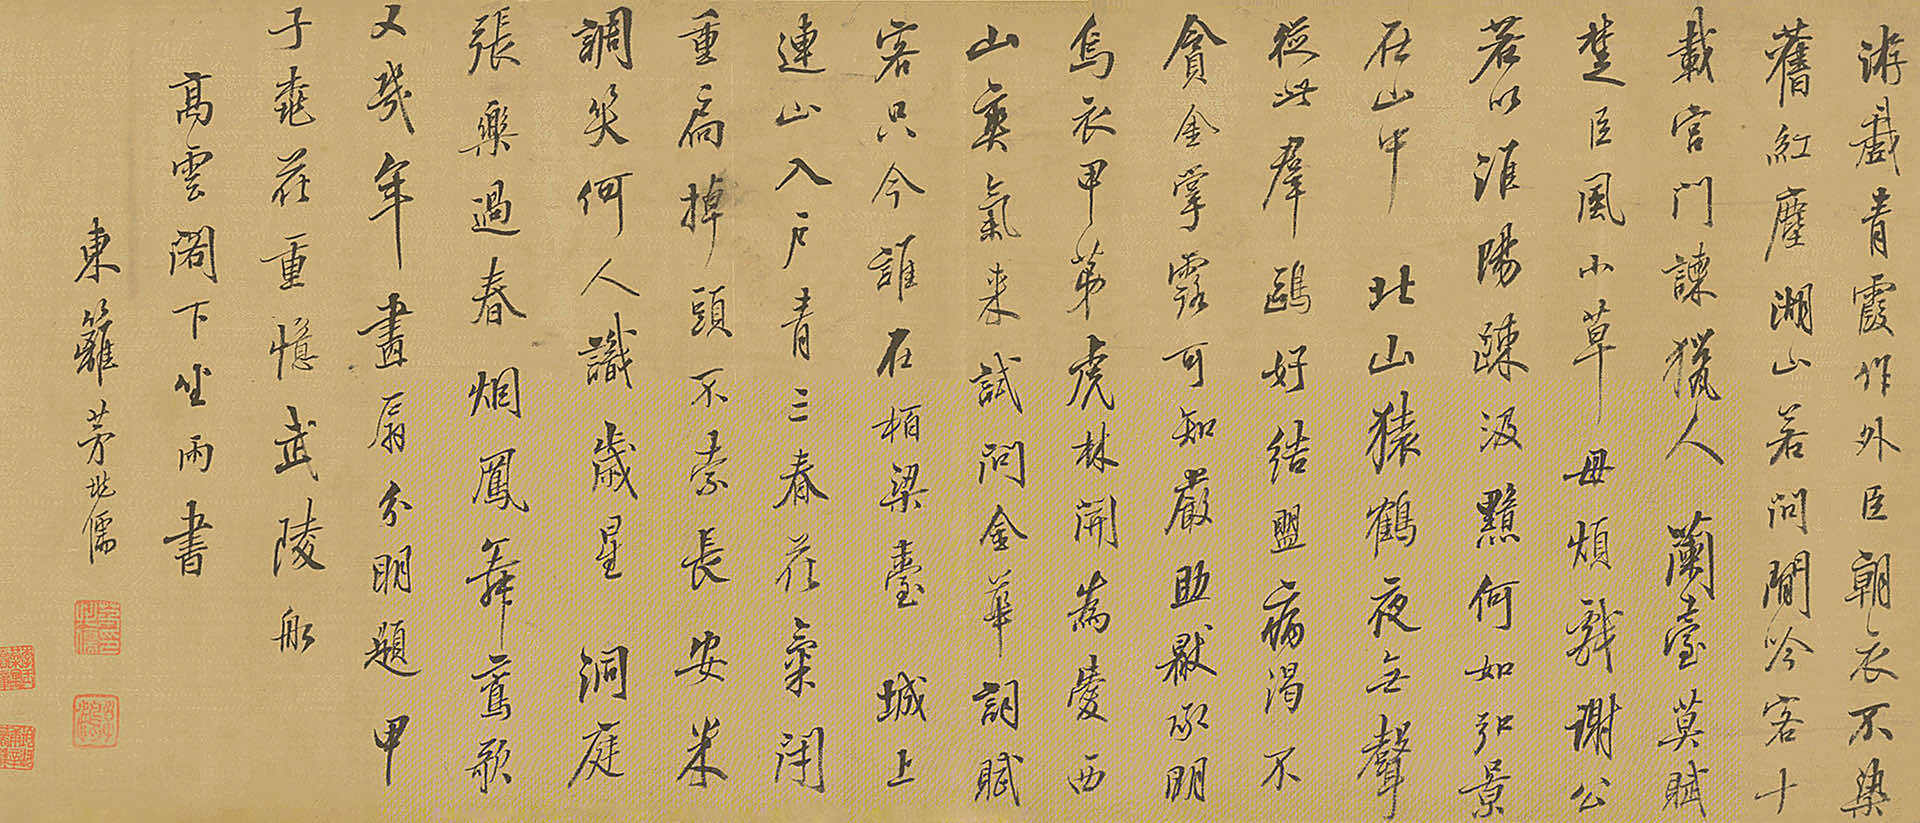 游戲青霞作外臣朝衣不染
舊紅塵湖山若問閒吟客十
載官門諫獵人　蘭臺莫賦
楚臣風小草毋煩戲謝公
若以淮陽踈汲黯何如弘景
在山中　北山猿鶴夜無聲
從此羣鷗好結盟病渴不
貪金掌露可知嚴助厭承明
烏衣甲第虎林開為愛西
山爽氣來試問金華詞賦
客只今誰在栢梁臺　城上
連山入戶青三春花氣閉
重扃掉頭不索長安米
調笑何人識歲星　洞庭
張樂過春烟鳳舞鸞歌
又幾年畫扇分明題甲
子桃花重憶武陵船
高雲閣下坐雨書
東籬茅地儒